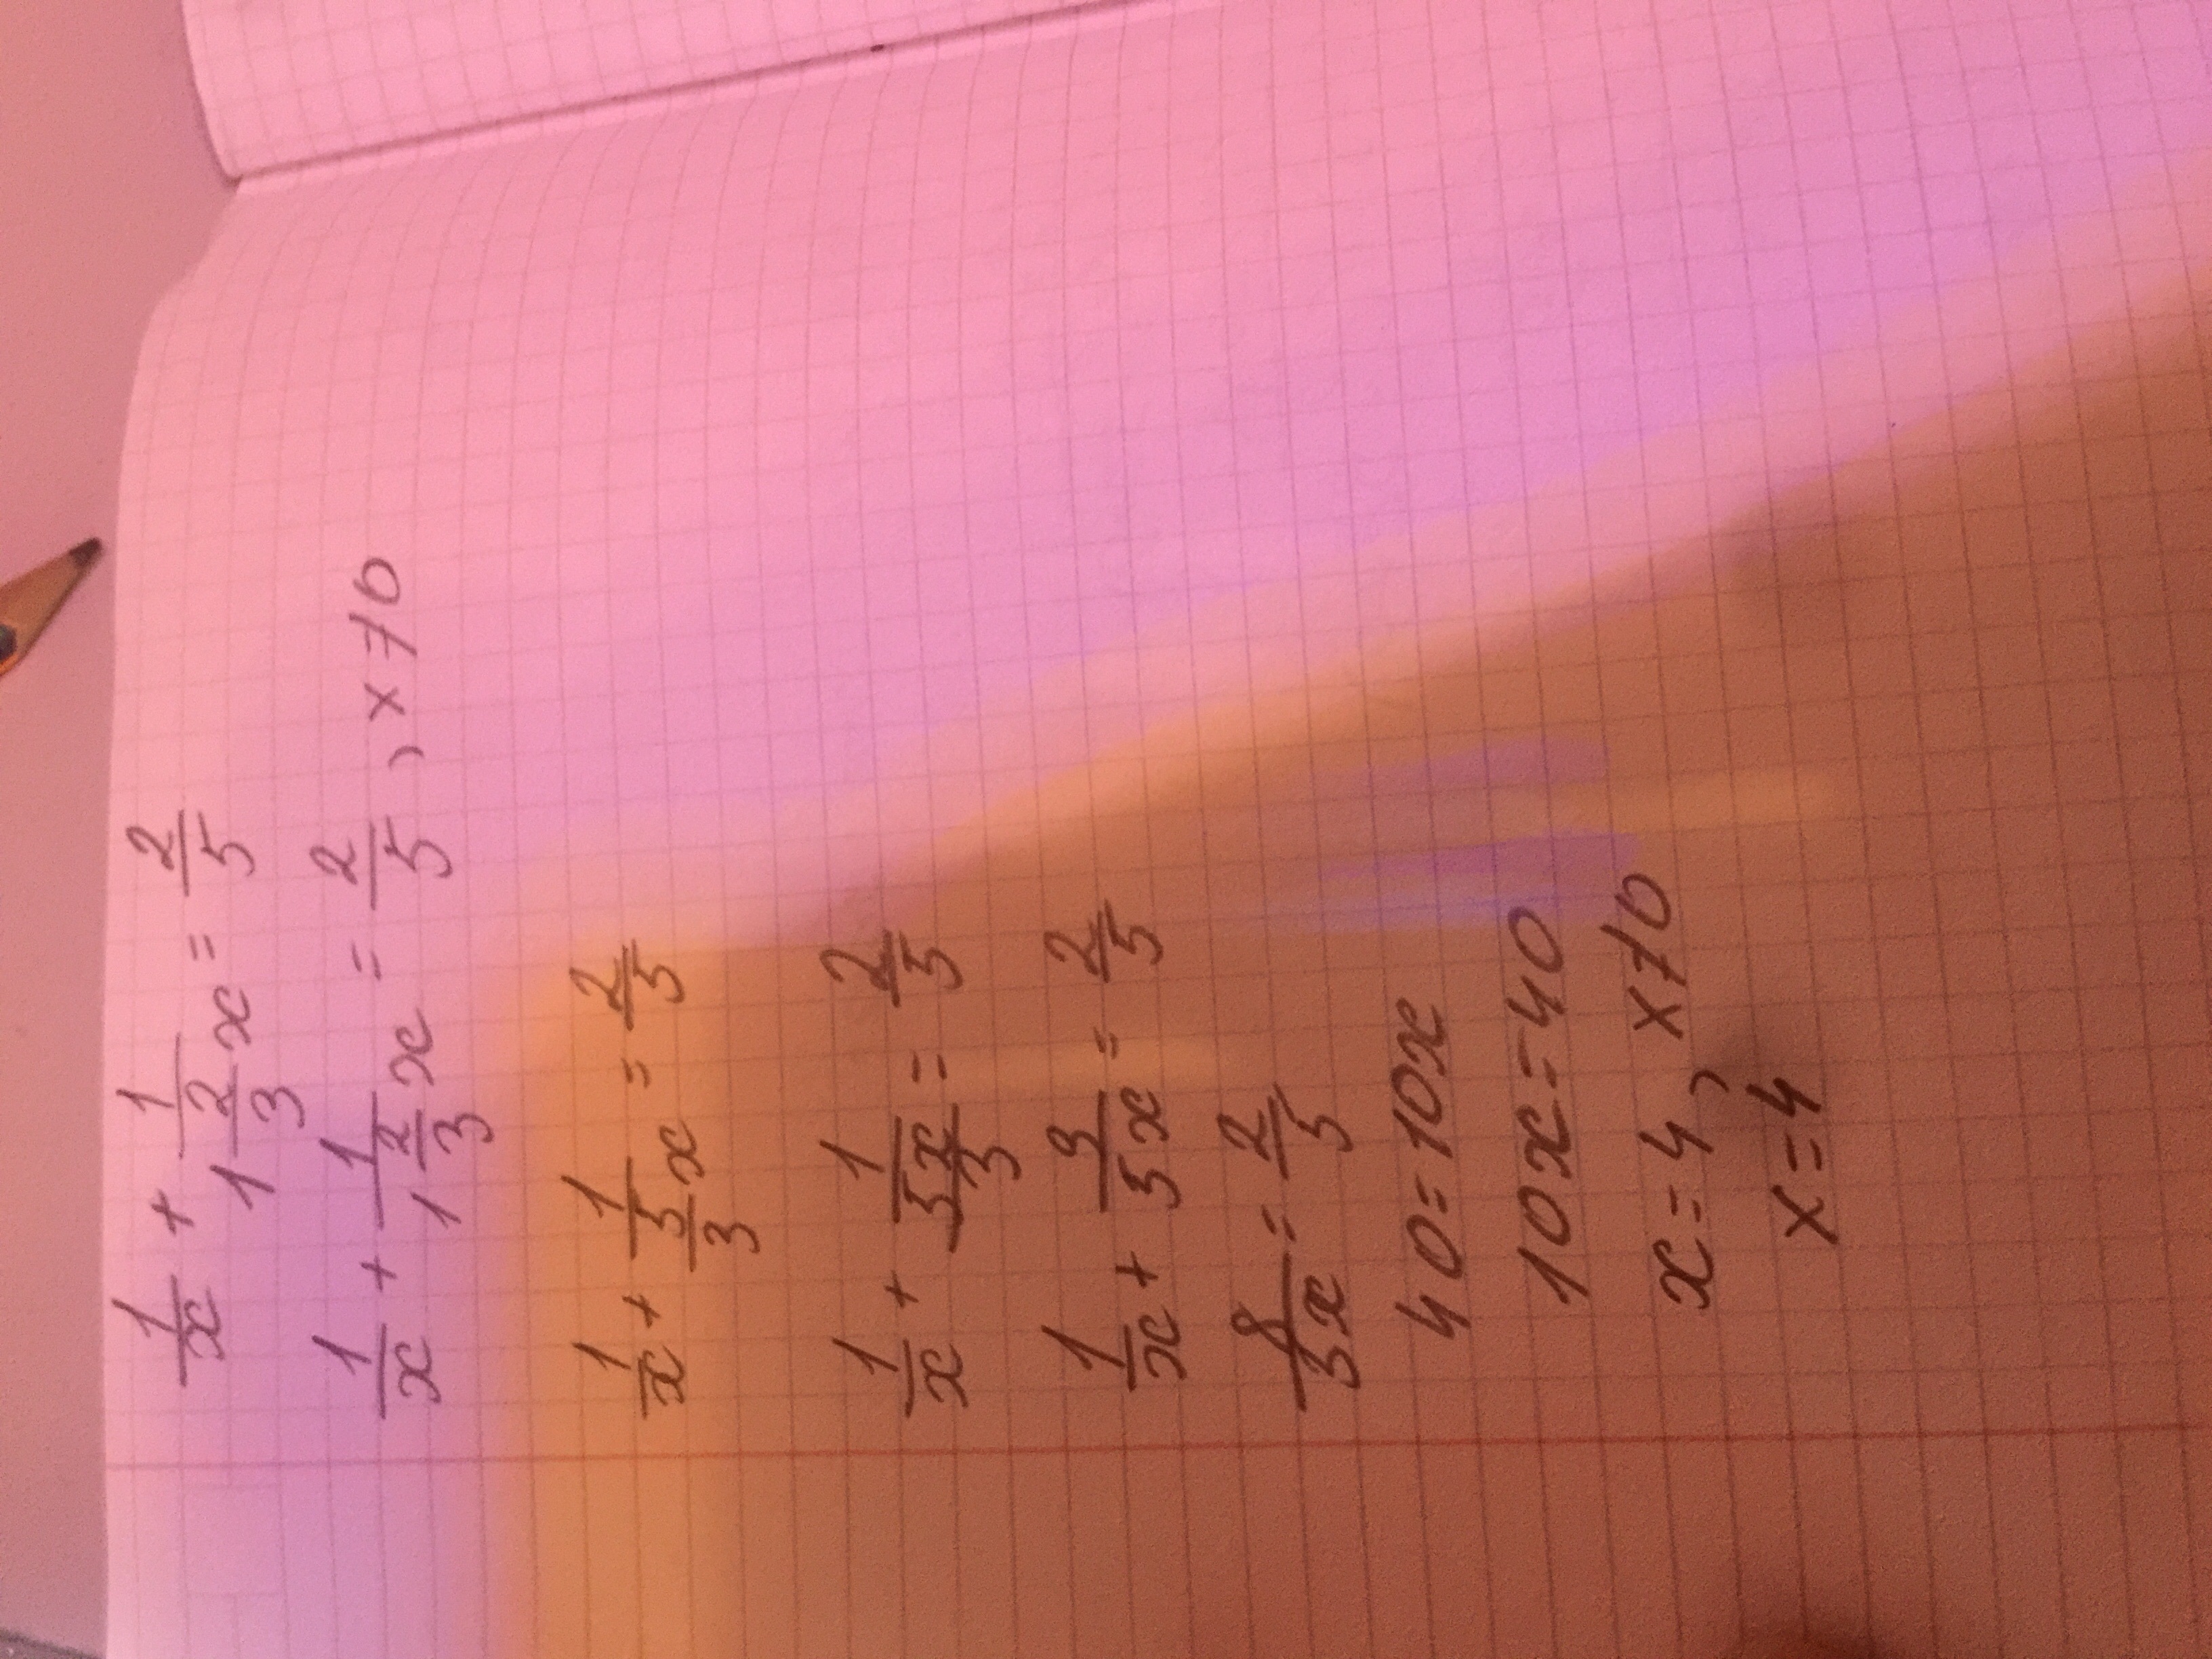 1/x + 1/(1 2/3 x) = 2/5
1/x + 1/(1 2/3 x) = 2/5 , x≠0
1/x + 1/(5/3 x) = 2/5
1/x + 1/(5x/3) = 2/5
1/x + 3/5x = 2/5
8/5x = 2/5
40=10x
10x=40
x=4, x≠0
x=4